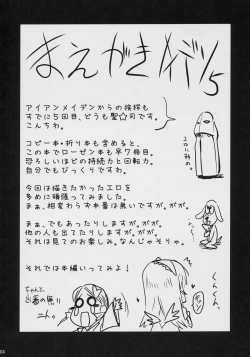 まえがきィィィ 1/5
アイアンメイデンからの挨拶も
すでに5回目、どうも聖☆司です。
こんちわ。
コピー本・折り本も含めると、
この本でローゼン本も早7冊目。
恐ろしいほどの持続力と回転力。
自分でもびっくりですわ。
今回は描きたかったエロを
多めに頑張ってみました。
まぁ、相変わらず本番は無いですが。がが。
まぁ、でもあったりしますが。がが。
他の人も出てたりしますが。がが。
それは見てのお楽しみ。なんじゃそりゃ。
それでは本編いってみよ!
くんくん
ちゃんと
出番の無い
04